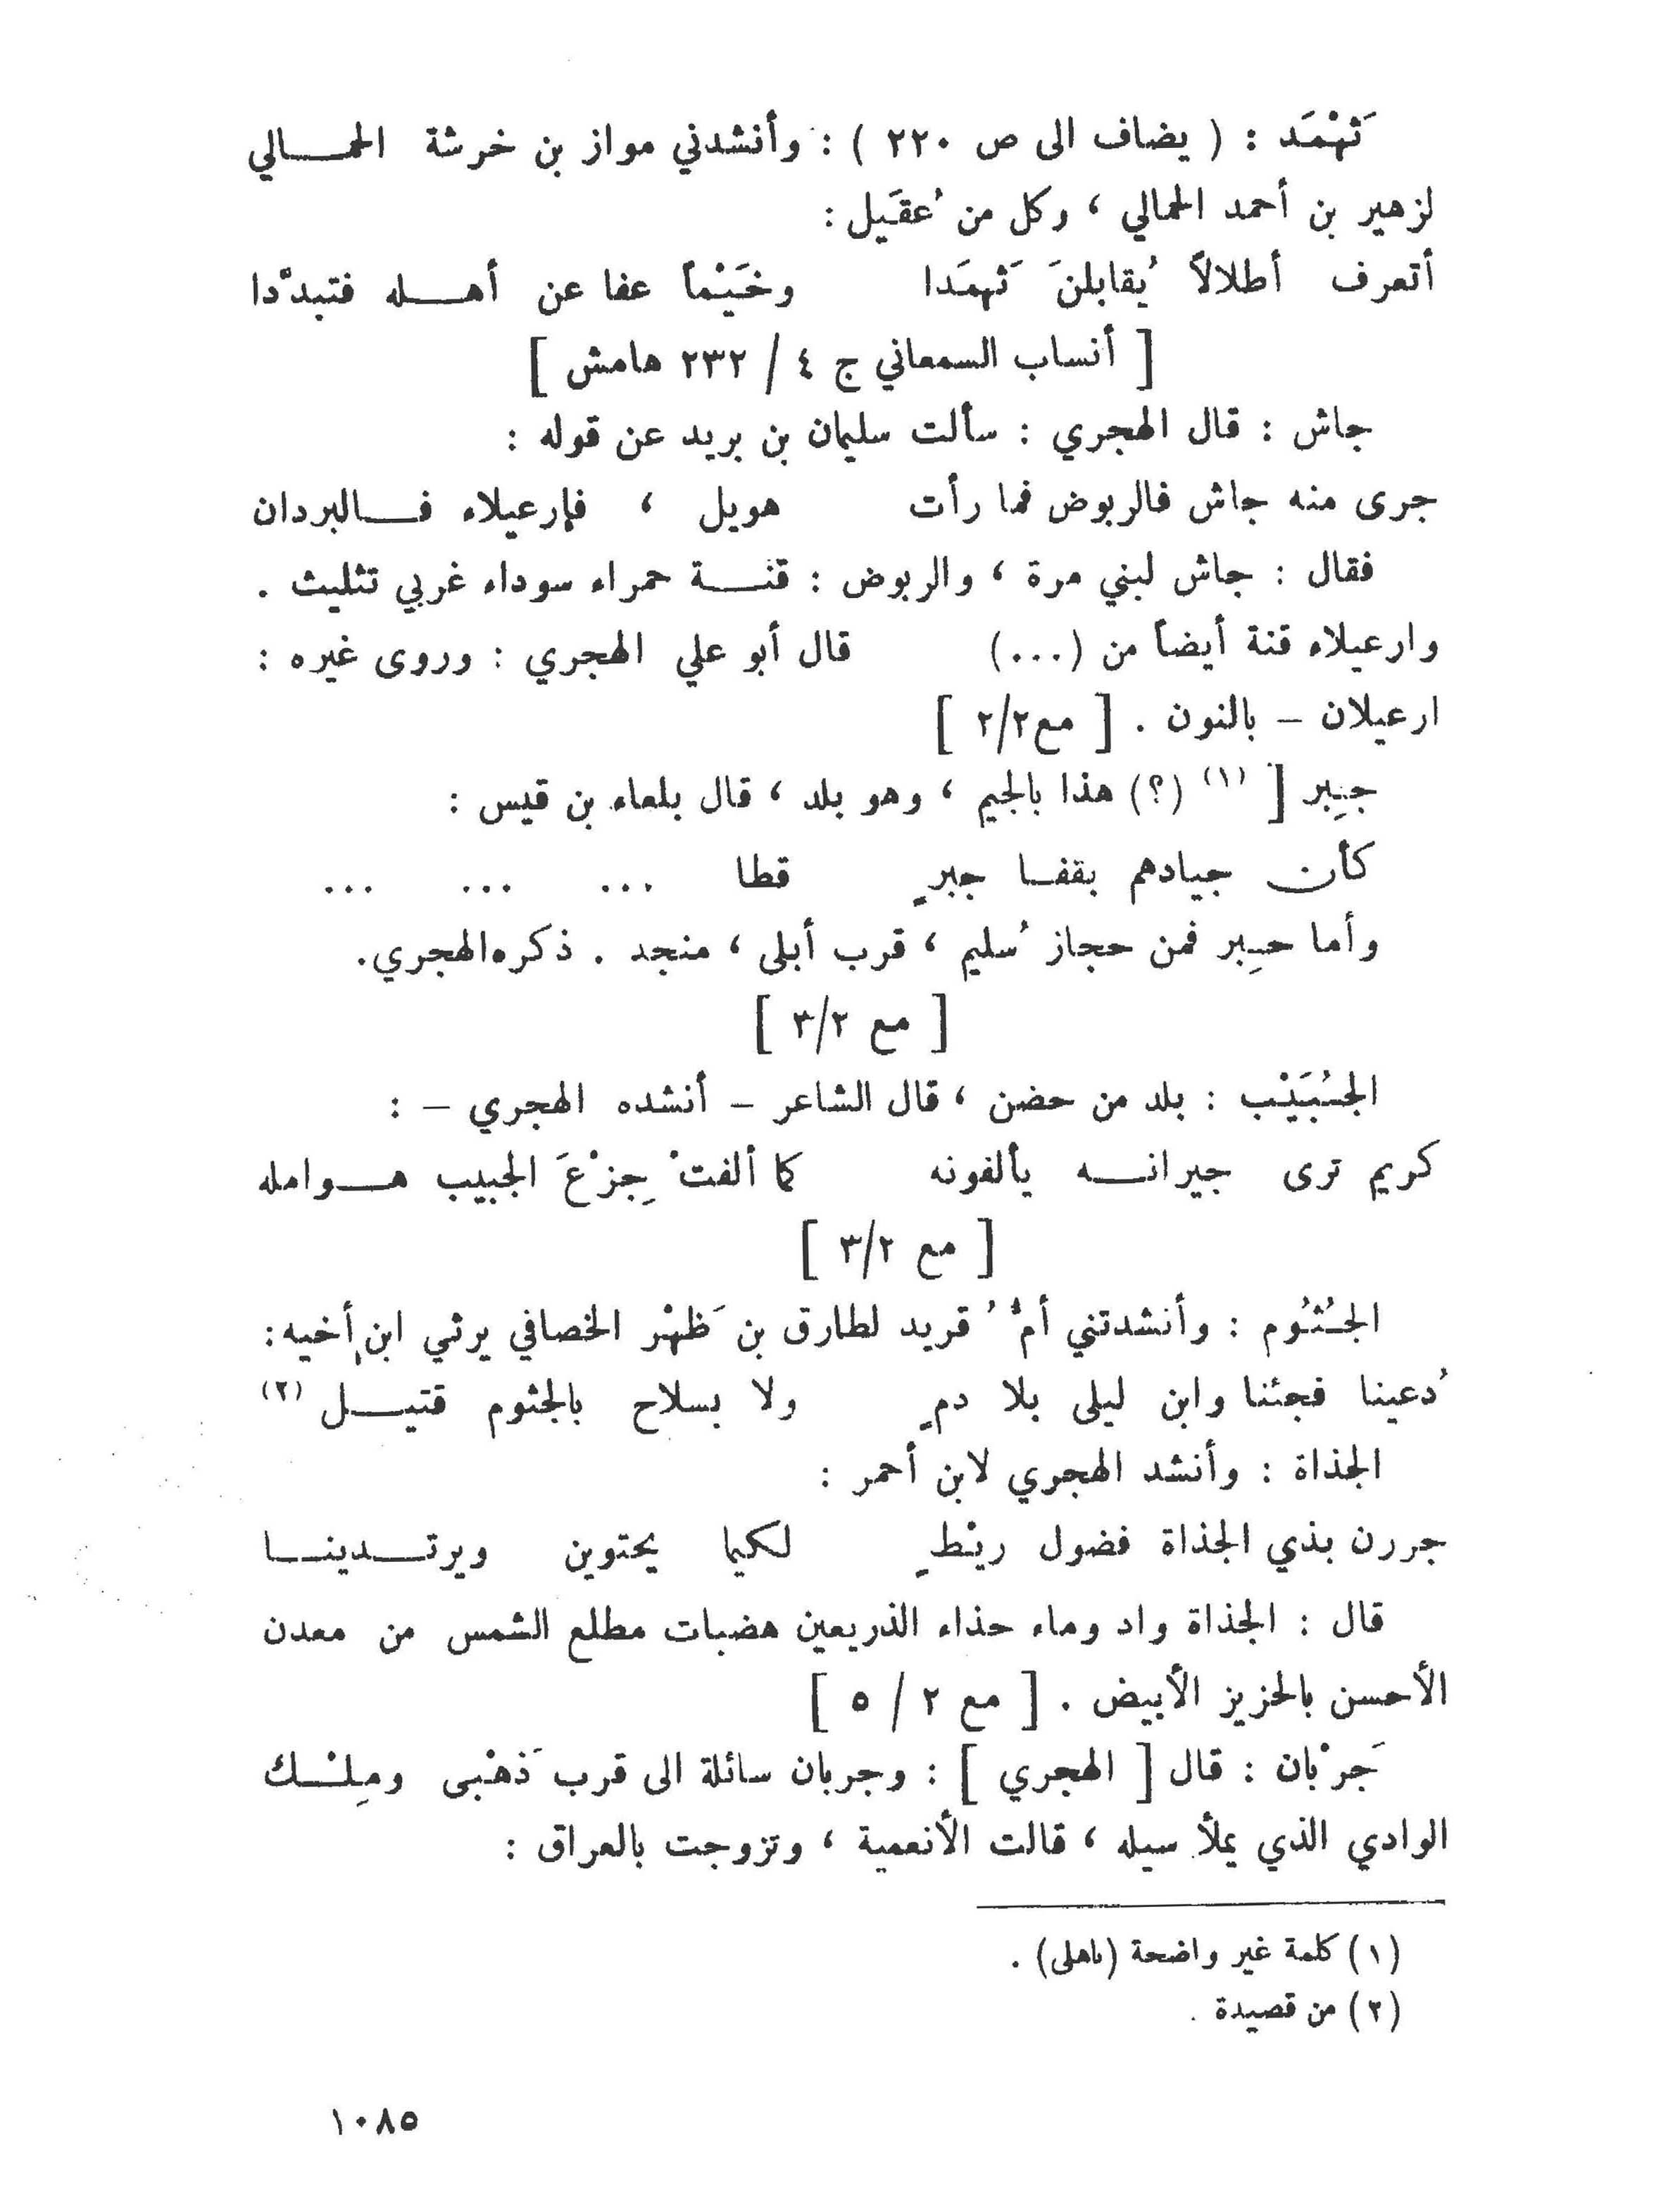 ثَهْمَد : ( يضاف الى ص ٢٢٠ ) : وأنشدني مواز بن خرشة الحمالي
لزهير بن أحمد الحمالي ، وكل من عُقَيل :
أتعرف أطلالاً يُقابلنَ ثَهمَدا وخَيْماً عفا عن أهله فتبدَّدا
[ أنساب السمعاني ج ٤ / ٢٣٢ هامش ]
جاش : قال الهجري : سألت سليمان بن بريد عن قوله :
جرى منه جاش فالربوض فما رأت هويل ، فإرعيلاء فالبردان
فقال : جاش لبني مرة ، والربوض : قنة حمراء سوداء غربي تثليث .
وارعيلاء قنة أيضاً من (...) قال أبو علي الهجري : وروى غيره :
ارعيلان – بالنون . [ مع٢/٢ ]
جِبر [ (١) (؟) هذا بالجيم ، وهو بلد ، قال بلعاء بن قيس :
كأن جيادهم بقفا جبرٍ قطا ... ... ...
وأما حِبر فمن حجاز سُليم ، قرب أبلى ، منجد . ذكره الهجري.
[ مع ٣/٢ ]
الجُبَيْب : بلد من حضن ، قال الشاعر – أنشده الهجري – :
كريم ترى جيرانه يألفونه كما ألفتْ جِزْعَ الجبيب هوامله
[ مع ٣/٢ ]
الجُثُوم : وأنشدتني أمُّ قريد لطارق بن ظَهْر الخصافي يرثي ابن أخيه:
دُعينا فجئنا وابن ليلى بلا دمٍ ولا بسلاح بالجثوم قتيل (٢)
الجذاة : وأنشد الهجري لابن أحمر :
جررن بذي الجذاة فضول ريْطٍ لكيما يحتوين ويرتدينا
قال : الجذاة واد وماء حذاء الذريعين هضبات مطلع الشمس من معدن
الأحسن بالحزيز الأبيض . [ مع ٢ / ٥ ]
جَرْبان : قال [ الهجري ] : وجربان سائلة الى قرب ذَهْبى ومِلْك
الوادي الذي يملأ سيله ، قالت الأنعمية ، وتزوجت بالعراق :
(١) كلمة غير واضحة (ىاهلى) .
(٢) من قصيدة .
١٠٨٥